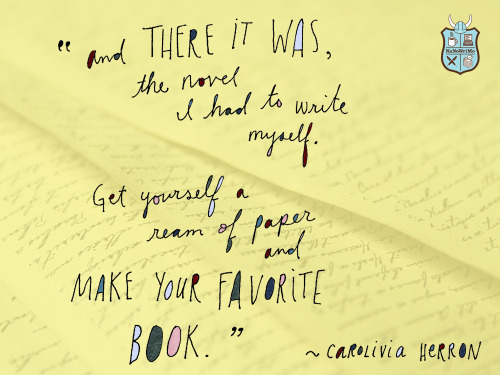 “ and THERE IT WAS,
the novel
I had to write
myself.
Get yourself a
ream of paper
and
MAKE YOUR FAVORITE
BOOK. ”
~ CAROLIVIA HERRON
NaNoWriMo